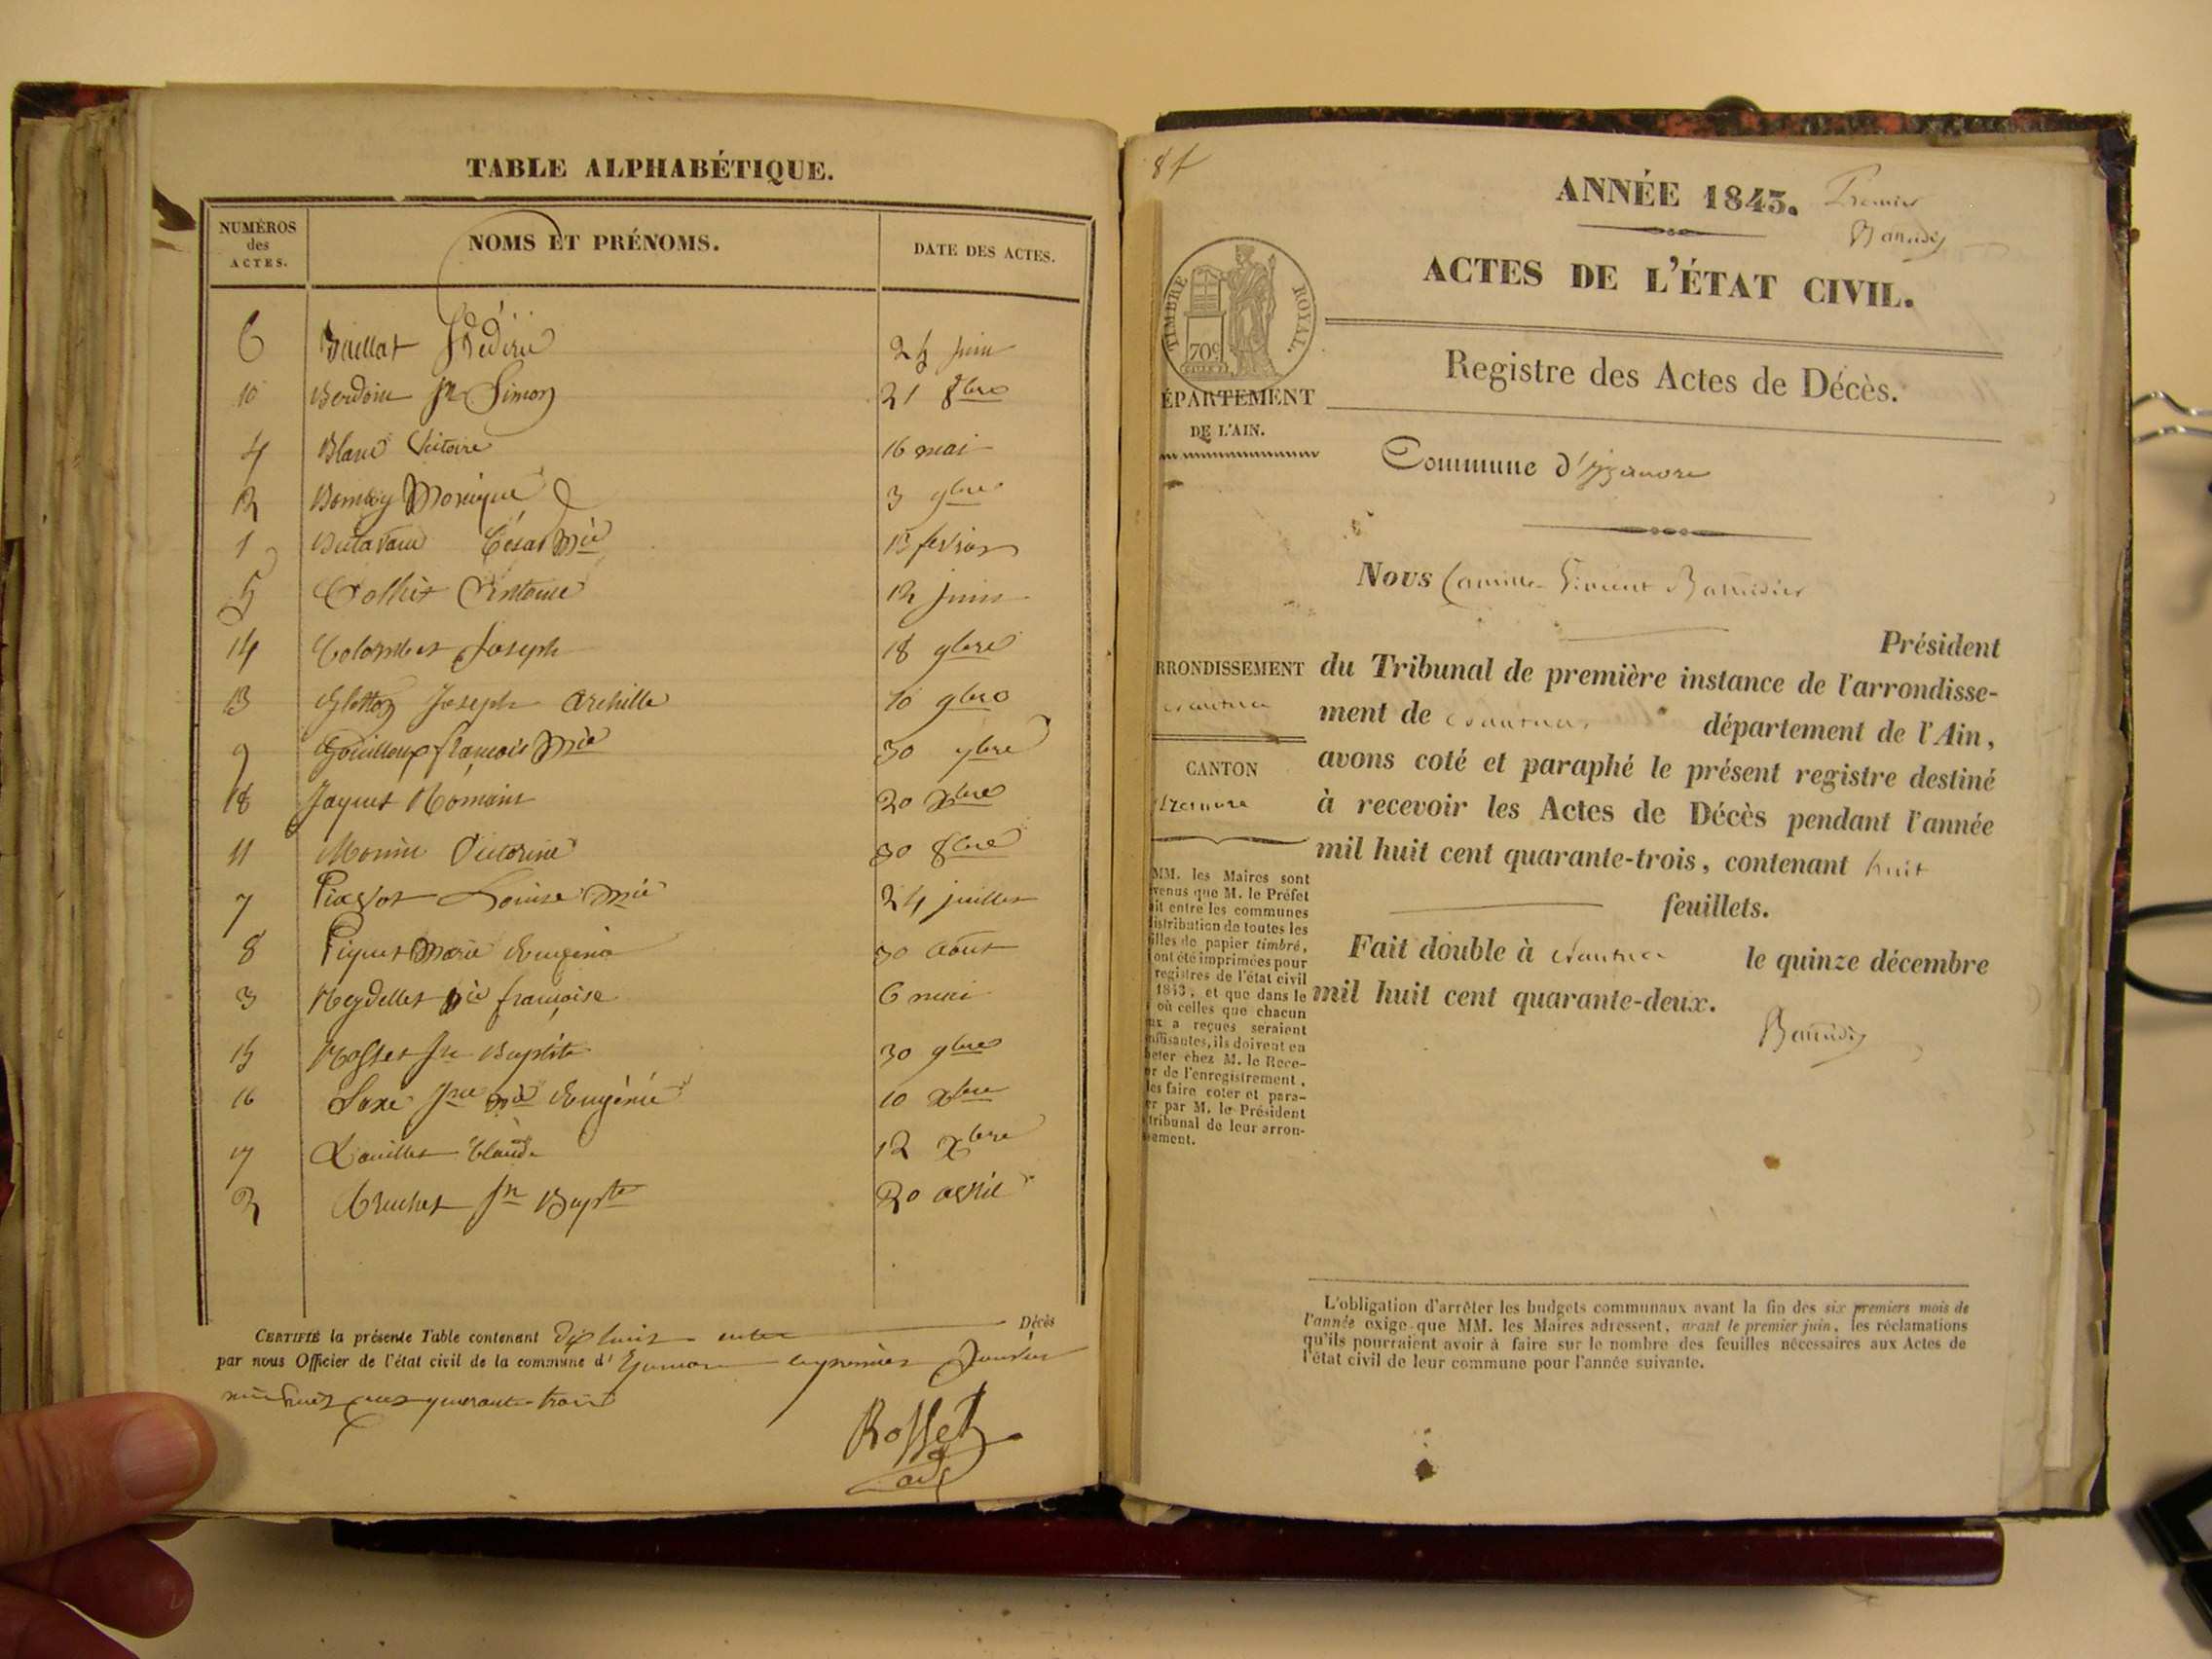 TABLE ALPHABÉTIQUE.
NUMÉROS
des
ACTES.
NOMS ET PRÉNOMS.
DATE DES ACTES.
6 Baillat Frédéric 24 juin
10 Jn Simon 21 8bre
4 Blanc Victoire 16 mai
12 Monique 3 9bre
1 César Mie février
5 Antoine 12 juin
14 Colombet Joseph 18 9bre
13 Gletton Joseph Archille 10 9bre
9 Gouilloux françois Mie 30 7bre
18 Jaquet Romain 20 Xbre
11 Morin Victorine 30 8bre
7 Louise Mie 24 juillet
8 Piquet Marie Eugénie 30 aout
3 Reydellet françoise 6 mai
15 Rosset Jn Baptiste 30 9bre
16 Eugénie 10 Xbre
17 Claude 12 Xbre
2 Jn Bapte 20 avril
CERTIFIÉ la présente Table contenant dix huit actes Décès
par nous Officier de l'état civil de la commune d' premier Janvier
mil huit cent quarante-trois
Rosset
adj
8 f
ANNÉE 1843. Premier
ACTES DE L'ÉTAT CIVIL.
TIMBRE ROYAL.
70c
Registre des Actes de Décès.
ÉPARTEMENT
DE L'AIN.
Commune d'Izernore
Nous Camille Vincent
Président
RRONDISSEMENT
du Tribunal de première instance de l'arrondisse-
nantua
ment de nantua département de l'Ain,
avons coté et paraphé le présent registre destiné
CANTON
à recevoir les Actes de Décès pendant l'année
Izernore
mil huit cent quarante-trois, contenant huit
feuillets.
MM. les Maires sont
venus que M. le Préfet
it entre les communes
istribution de toutes les
illes de papier timbré,
ont été imprimées pour
registres de l'état civil
1843, et que dans le
où celles que chacun
ux a reçues seraient
uffisantes, ils doivent en
heter chez M. le Rece-
r de l'enregistrement,
les faire coter et para-
er par M. le Président
tribunal de leur arron-
sement.
Fait double à nantua le quinze décembre
mil huit cent quarante-deux.
L'obligation d'arrêter les budgets communaux avant la fin des six premiers mois de
l'année exige que MM. les Maires adressent, avant le premier juin, les réclamations
qu'ils pourraient avoir à faire sur le nombre des feuilles nécessaires aux Actes de
l'état civil de leur commune pour l'année suivante.